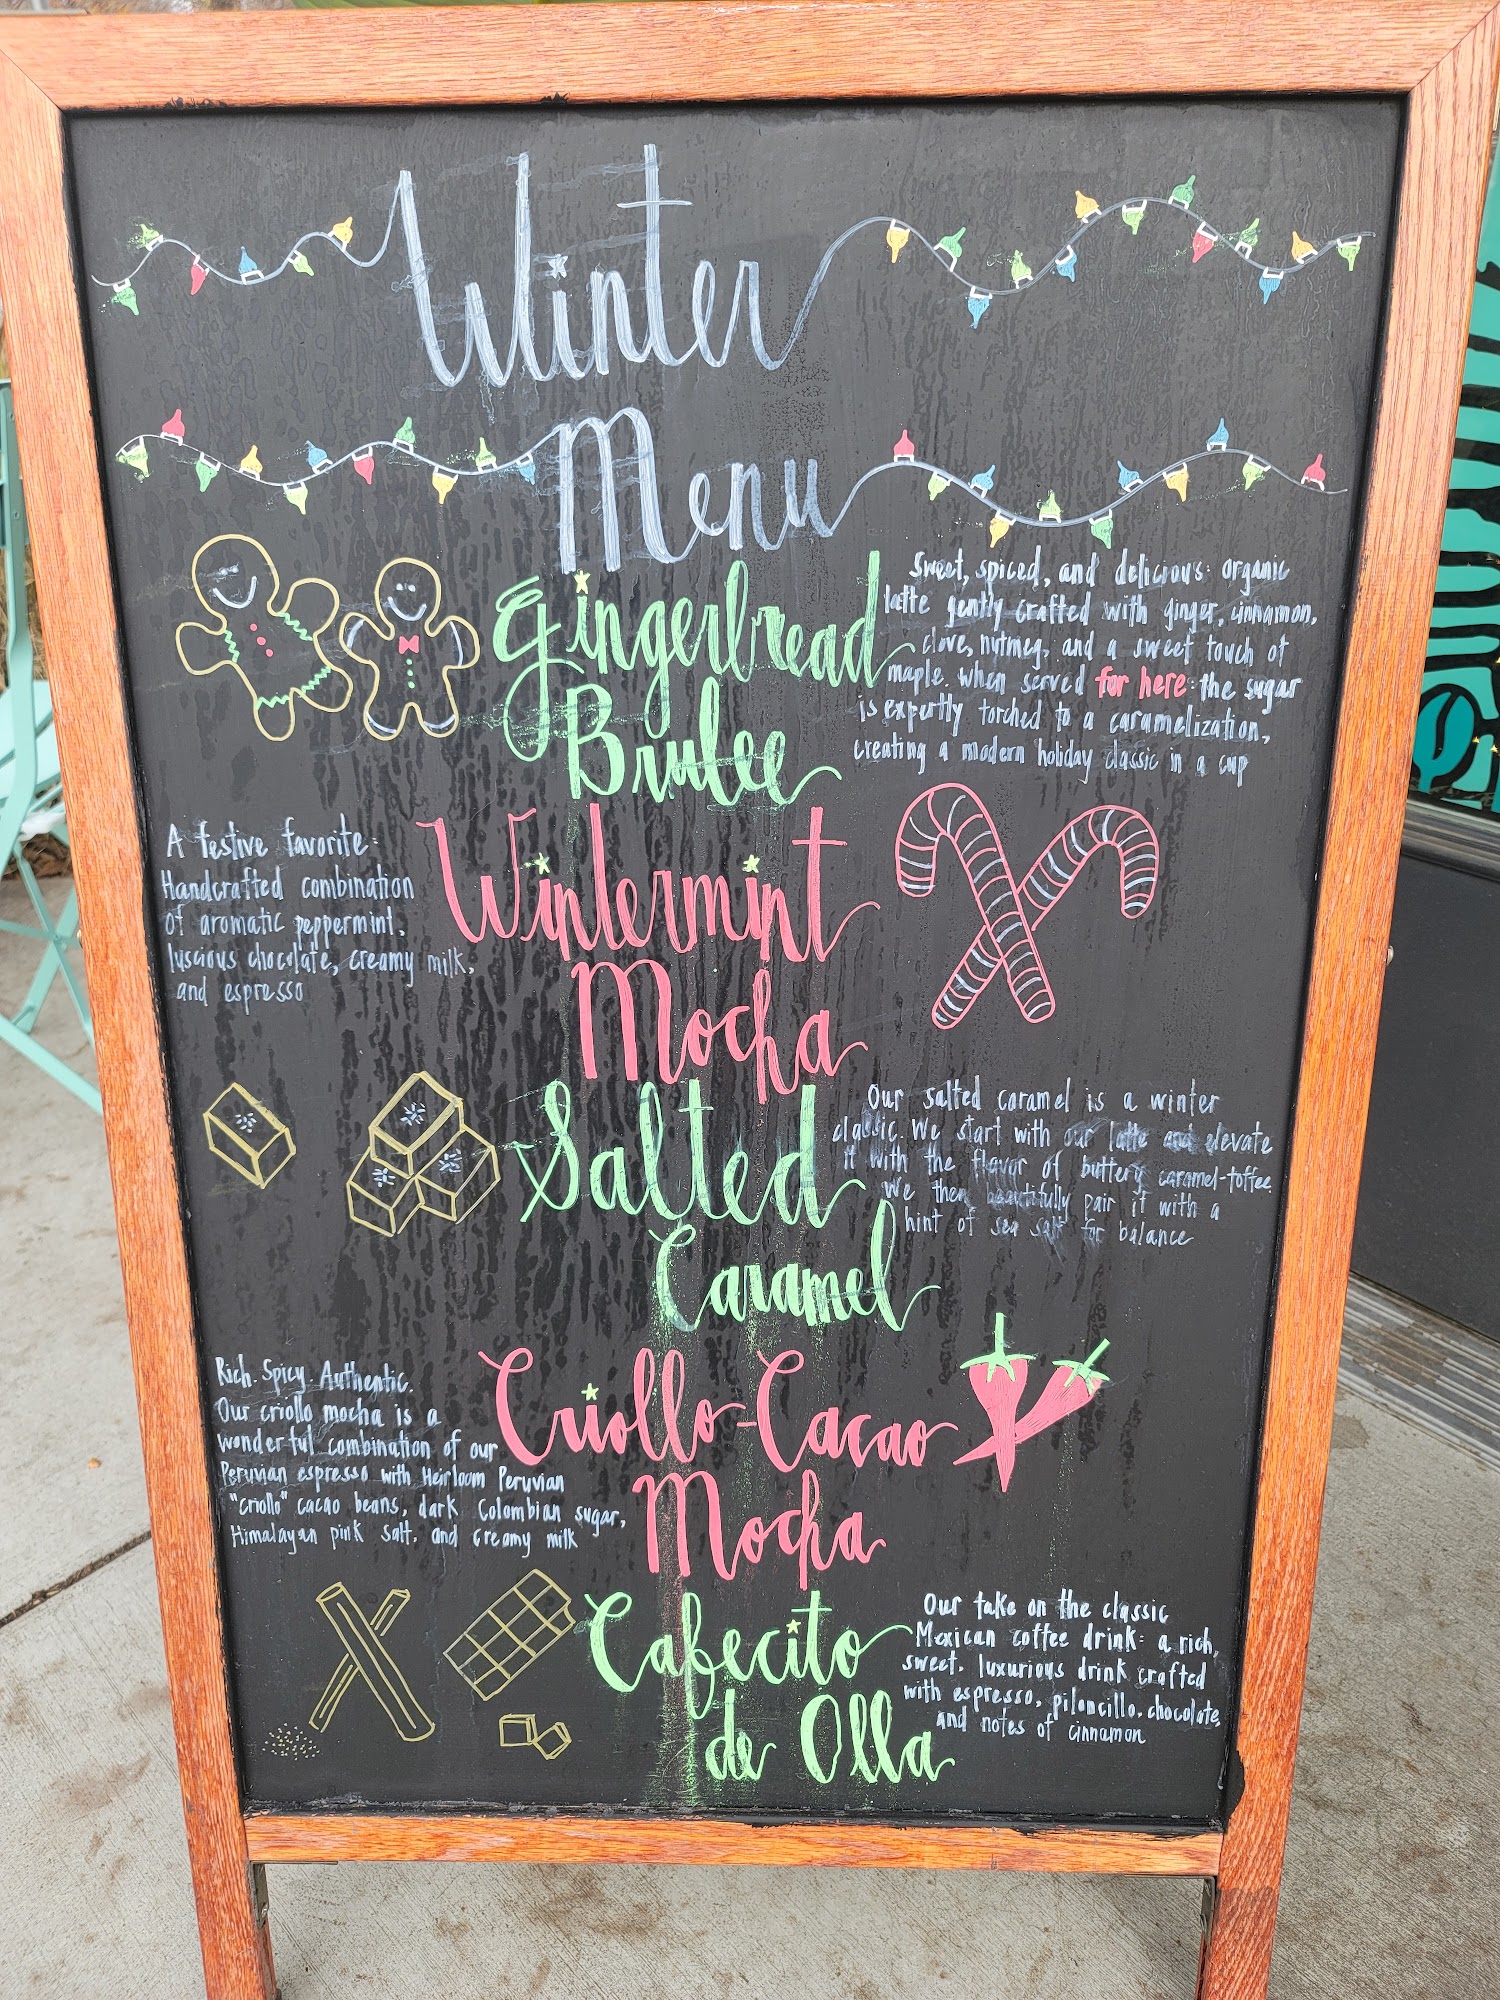 Winter
Menu
Gingerbread
Brulee
Sweet, spiced, and delicious: organic
latte gently crafted with ginger, cinnamon,
clove, nutmeg, and a sweet touch of
maple. When served for here: the sugar
is expertly torched to a caramelization,
creating a modern holiday classic in a cup
A festive favorite:
Handcrafted combination
of aromatic peppermint,
luscious chocolate, creamy milk,
and espresso
Wintermint
Mocha
Salted
Caramel
Our salted caramel is a winter
classic. We start with our latte and elevate
it with the flavor of buttery caramel-toffee.
We then beautifully pair it with a
hint of sea salt for balance
Rich. Spicy. Authentic.
Our criollo mocha is a
wonderful combination of our
Peruvian espresso with Heirloom Peruvian
"criollo" cacao beans, dark Colombian sugar,
Himalayan pink salt, and creamy milk
Criollo-Cacao
Mocha
Cafecito
de Olla
Our take on the classic
Mexican coffee drink: a rich,
sweet, luxurious drink crafted
with espresso, piloncillo, chocolate,
and notes of cinnamon